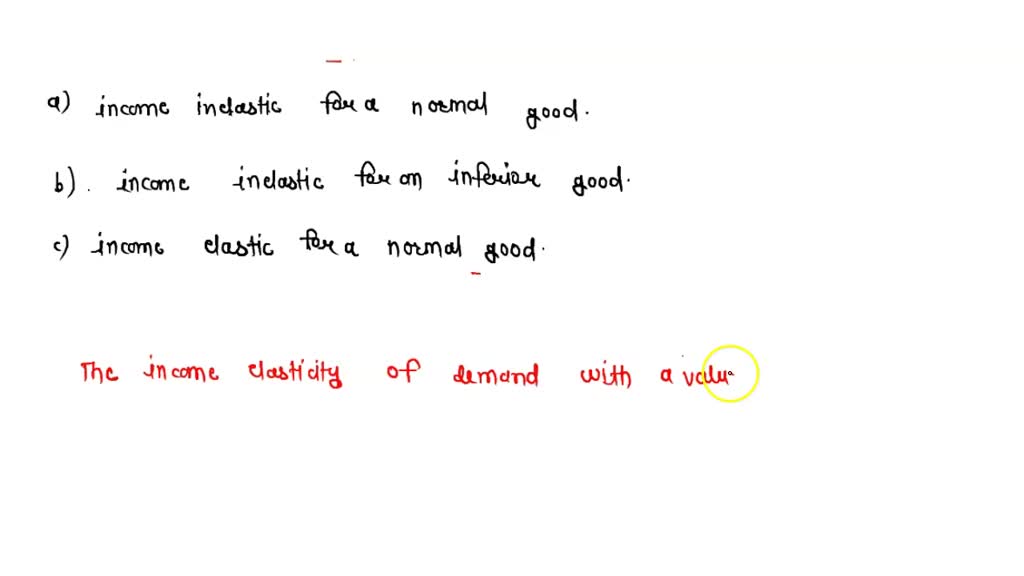 a) income inelastic for a normal good.
b). income inelastic for an inferior good.
c) income elastic for a normal good.
The income elasticity of demand with a valu